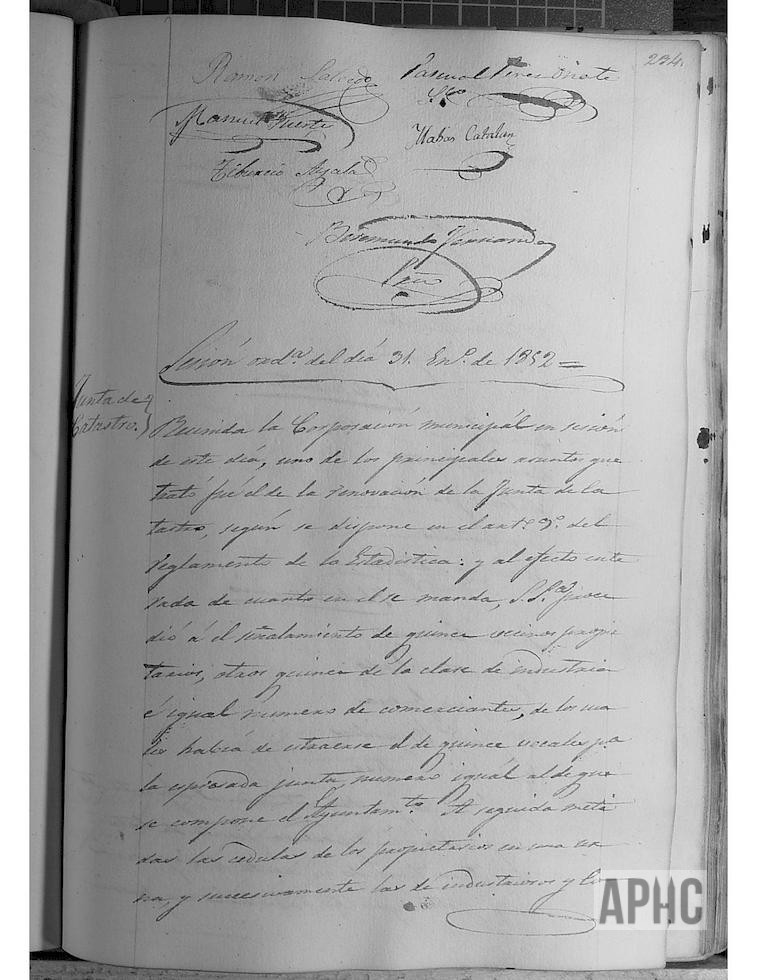 234.
Ramon Salcedo Pascual Perez Oñate
Manuel Huerta
Matias Catalan
Tiburcio Ayala
Beremundo Fernandez
Srio
Sesión ord.ª del dia 31. En.º de 1852=
Junta de
Catastro.
Reunida la Corporación municipál en sesión
de este dia, uno de los principales asuntos que
trató fué el de la renovación de la Junta de Ca
tastro, según se dispone en el art.º 9.º del
reglamento de la Estadística: y al efecto ente
rada de cuanto en el se manda, S.S.ª proce
dió á el señalamiento de quince vecinos propie
tarios, otros quince de la clase de industria
é igual número de comerciantes, de los cua
les habia de estraerse el de quince vocales p.ª
la espresada junta, numero iguál al de que
se compone el Ayuntam.to A seguida meti
das las cedulas de los propietarios en una ur
na, y sucesivamente las de industriosos y Co
APHC